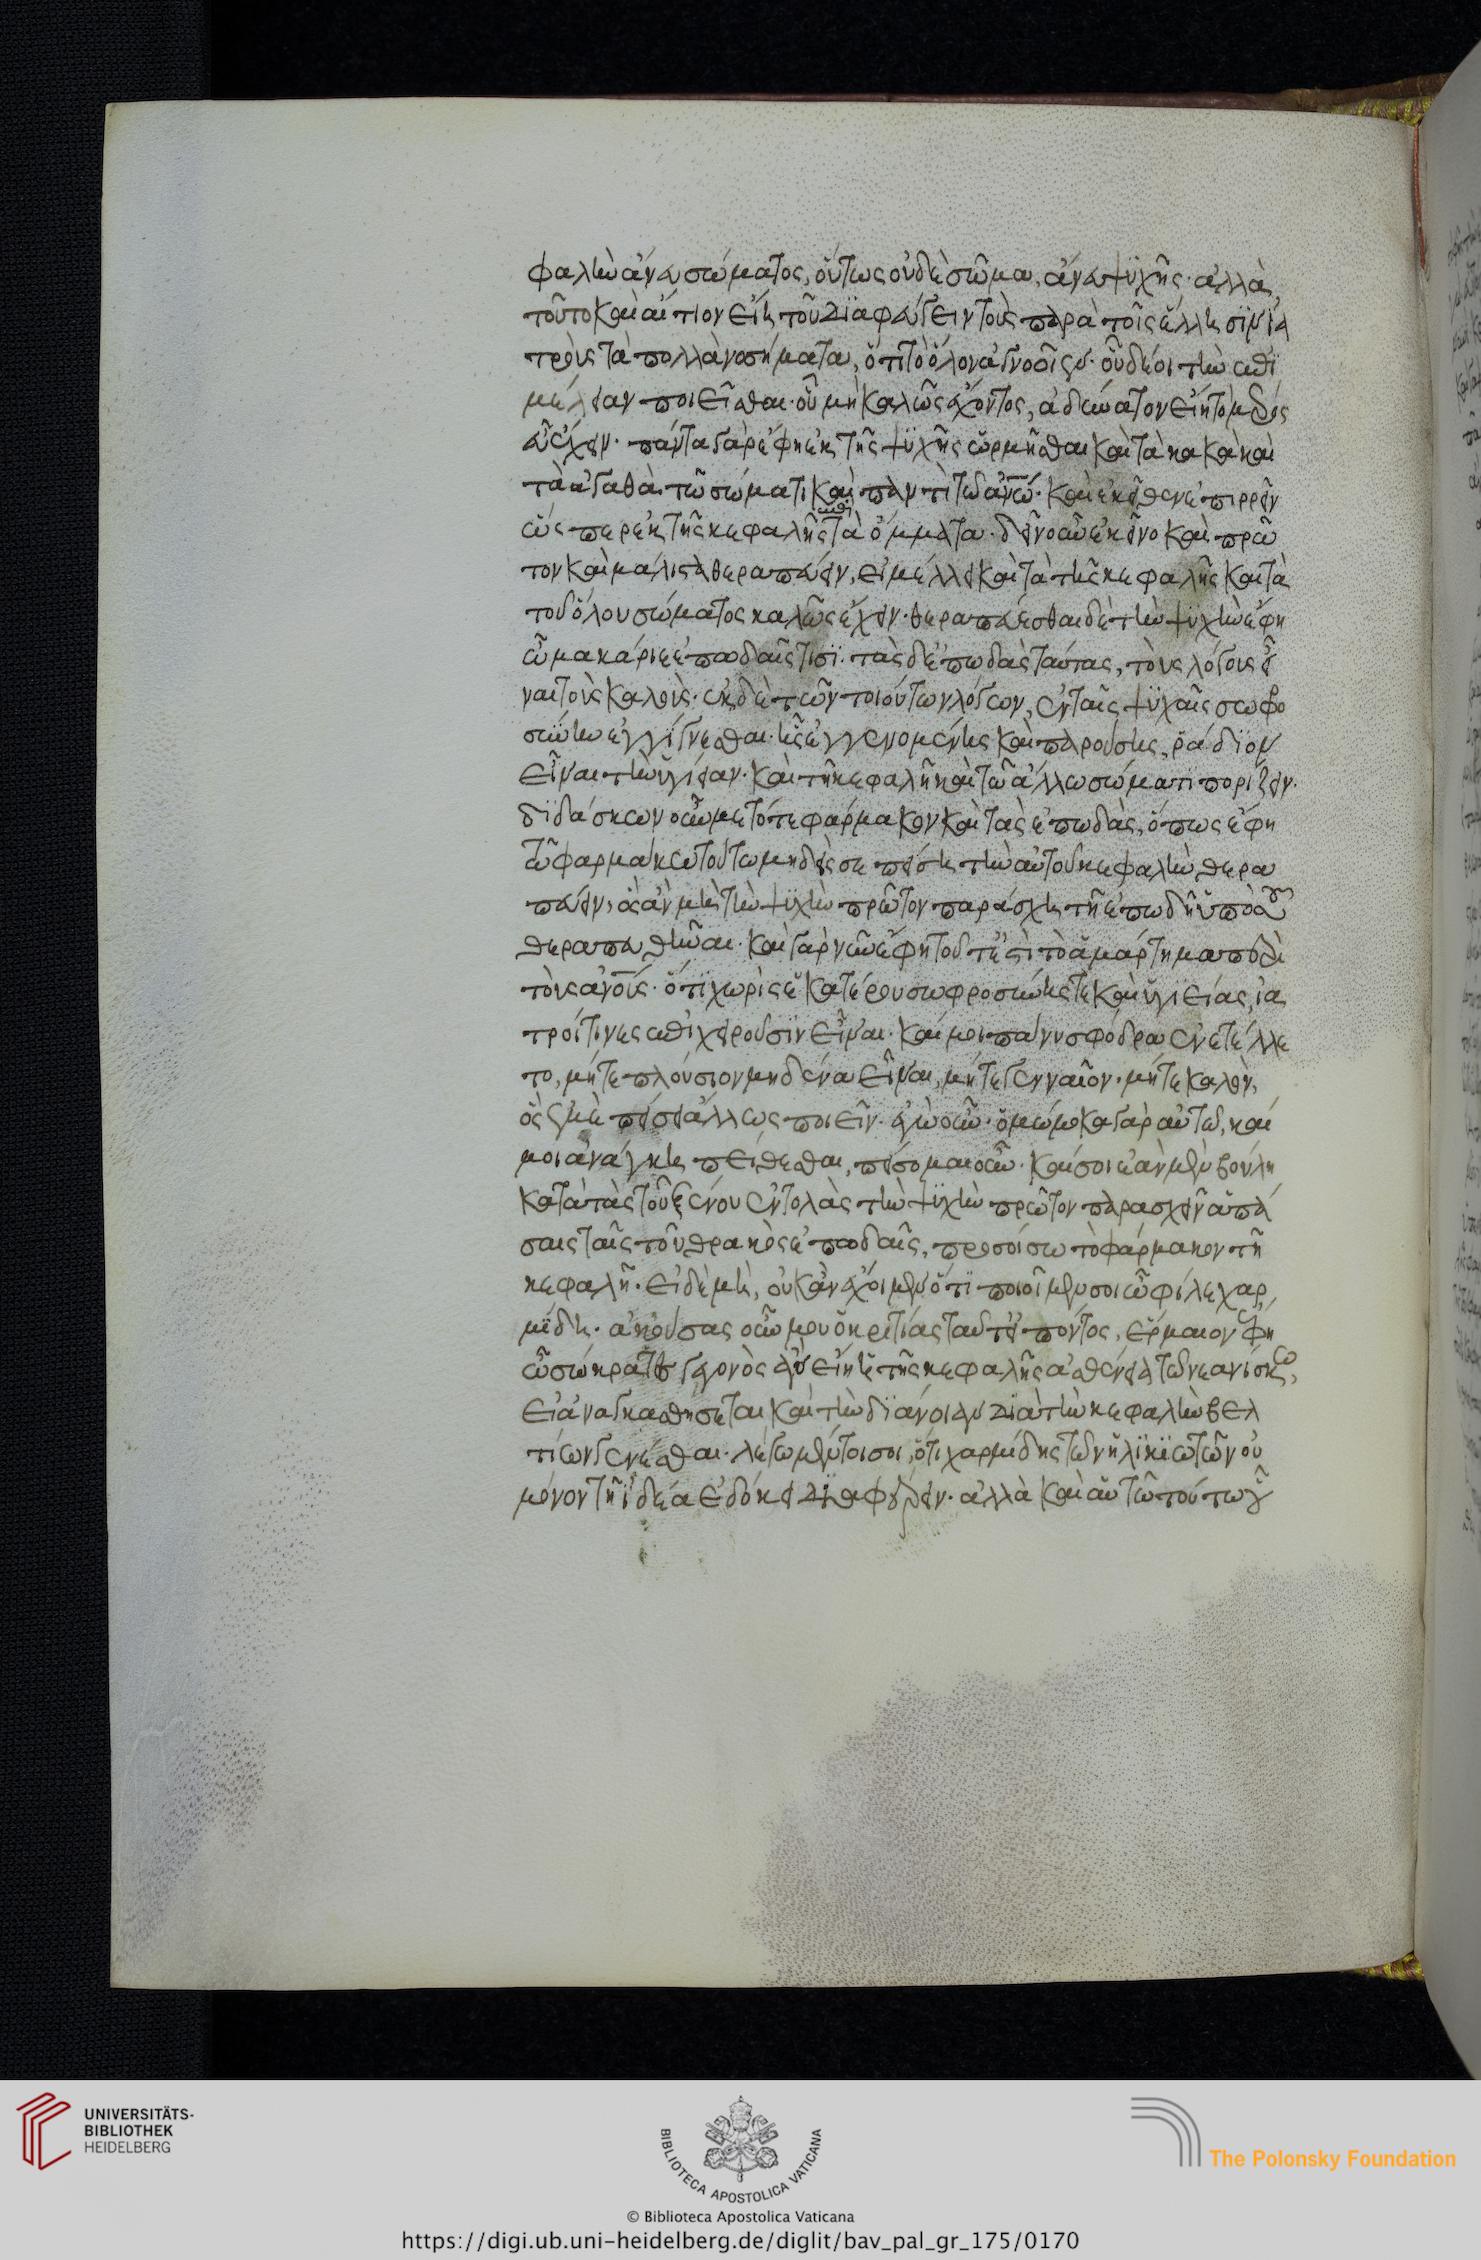 φαλὴν ἄνευ σώματος, οὕτως οὐδὲ σῶμα, ἄνευ ψϋχῆς· ἀλλὰ
τοῦτο καὶ αἴτιον εἴη τοῦ διαφεύγειν τοὺς παρὰ τοῖς ἕλλησιν ἰα
τροὺς τὰ πολλὰ νοσήματα, ὅτι τὸ ὅλον ἀγνοοῖεν· οὗ δέοι τὴν ἐπι
μέλειαν ποιεῖσθαι· οὗ μὴ καλῶς ἔχοντος, ἀδύνατον εἴη τὸ μέρος
εὖ ἔχειν· πάντα γὰρ ἔφη ἐκ τῆς ψϋχῆς ὡρμῆσθαι καὶ τὰ κακὰ καὶ
τὰ ἀγαθὰ τῶ σώματι καὶ παντὶ τῶ ἀνω̅· καὶ ἐκεῖθεν ἐπιρρεῖν
ὥσπερ ἐκ τῆς κεφαλῆς ἐπὶ τὰ ὄμματα· δεῖν οὖν ἐκεῖνο καὶ πρῶ
τον καὶ μάλιστα θεραπεύειν, εἰ μέλλει καὶ τὰ τῆς κεφαλῆς καὶ τὰ
τοῦ ὅλου σώματος καλῶς ἔχειν· θεραπεύεσθαι δὲ τὴν ψυχὴν ἔφη
ὦ μακάριε ἐπωδαῖς τισϊ· τὰς δ' ἐπωδὰς ταύτας, τοὺς λόγους εἶ
ναι τοὺς καλούς· ἐκ δὲ τῶν τοιούτων λόγων, ἐν ταῖς ψϋχαῖς σωφρο
σύνην ἐγγίγνεσθαι· ἧς ἐγγενομένης καὶ παρούσης, ῥάδϊον
εἶναι τὴν ὑγίειαν· καὶ τῆ κεφαλῆ καὶ τῶ ἄλλω σώματϊ πορίζειν·
δϊδάσκων οὖν με τό τε φάρμακον καὶ τὰς ἐπωδὰς, ὅπως ἔφη
τῶ φαρμάκω τούτω μηδείς σε πείσει τὴν αὐτοῦ κεφαλὴν θερα
πεύειν, ὃς ἂν μὴ τὴν ψϋχὴν πρῶτον παράσχη τῆ ἐπωδῆ ὑπὸ σοῦ
θεραπευθῆναι· καὶ γὰρ νῦν ἔφη τοῦτ' ἐστὶ τὸ ἁμάρτημα περὶ
τοὺς ἀνο̅ις· ὅτι χωρὶς ἑκατέρου σωφροσύνης τε καὶ ὑγιείας, ἰα
τροί τινες ἐπιχειροῦσϊν εἶναι· καί μοι πάνυ σφόδρα ἐνετέλλε
το, μήτε πλούσιον μηδένα εἶναι, μήτε γενναῖον· μήτε καλόν,
ὃς ἐμὲ πείσει ἄλλως ποιεῖν· ἐγὼ οὖν· ὀμώμοκα γὰρ αὐτῶ, καί
μοι ἀνάγκη πείθεσθαι, πείσομαι οὖν· καί σοι ἐὰν μὲν βούλη
κατὰ τὰς τοῦ ξένου ἐντολὰς τὴν ψϋχὴν πρῶτον παρασχεῖν ἁπά
σαις ταῖς τοῦ θρακὸς ἐπωδαῖς, προσοίσω τὸ φάρμακον τῆ
κεφαλῆ· εἰ δὲ μὴ, οὐκ ἂν ἔχοιμεν ὅ τϊ ποιοῖμέν σοι ὦ φίλε χαρ
μίδη· ἀκούσας οὖν μου ὁ κριτίας ταῦτ' εἰπόντος, ἕρμαιον ἔφη
ὦ σώκρατες γεγονὸς ἂν εἴη ἡ τῆς κεφαλῆς ἀσθένεια τῶ νεανίσκω,
εἰ ἀναγκασθήσεται καὶ τὴν δϊάνοιαν διὰ τὴν κεφαλὴν βελ
τίων γενέσθαι· λέγω μέντοι σοι, ὅτι χαρμίδης τῶν ἡλϊκϊωτῶν οὐ
μόνον τῆ ἰδέα ἐδόκει διαφέρειν· ἀλλὰ καὶ αὐτῶ τούτω